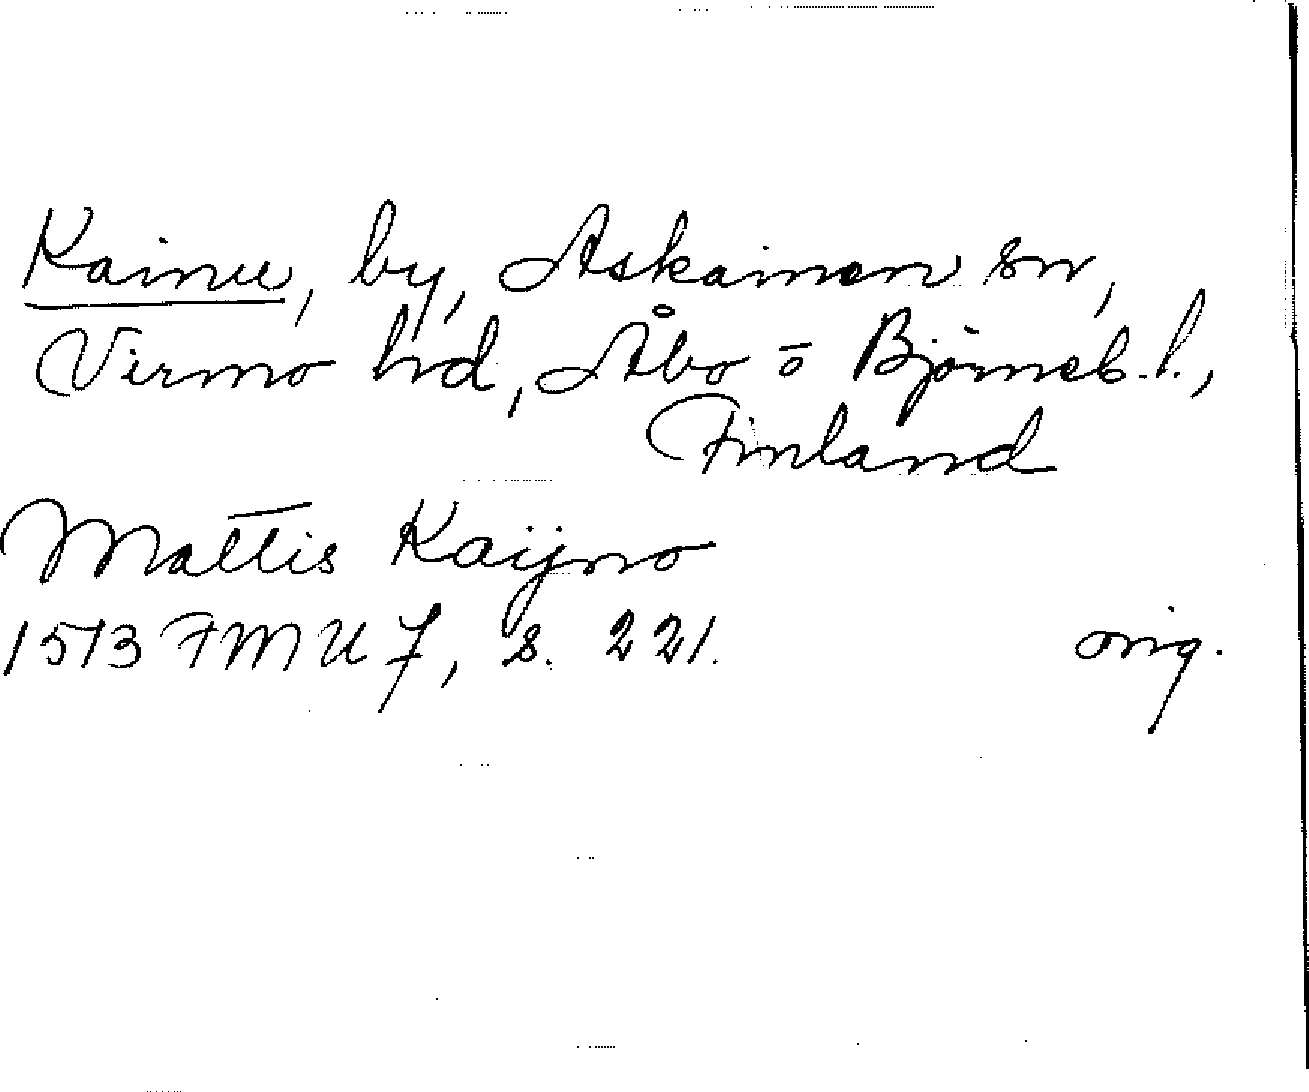 Kainu, by, Askainen sn,
Virmo hd, Åbo o Björneb. l.,
Finland
Mattis Kaÿno
1513 FMU 7, s. 221. orig.